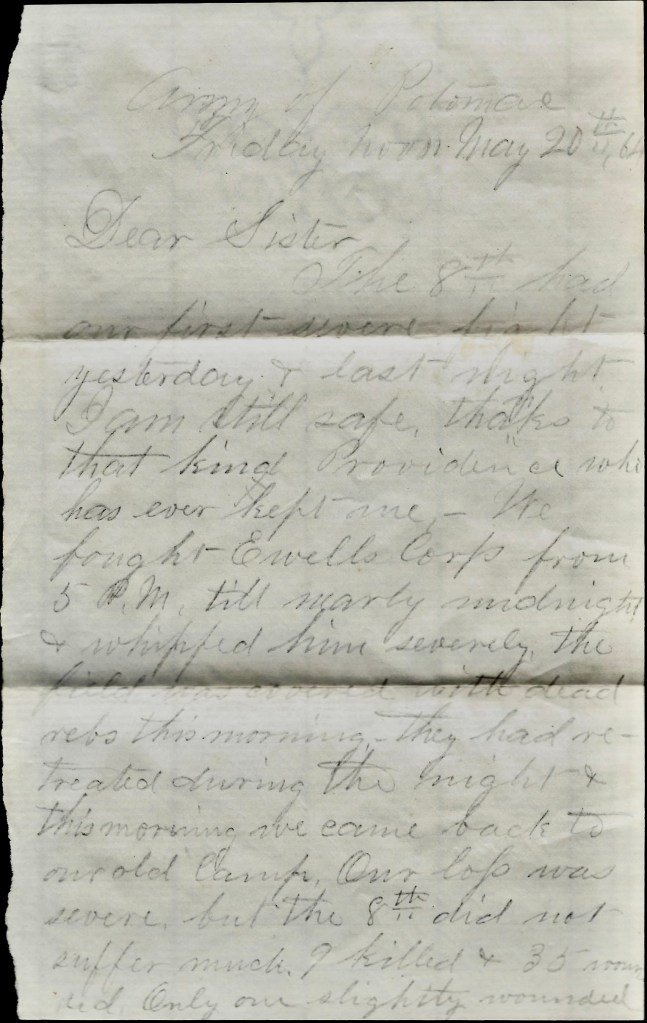 Army of Potomac
Friday noon May 20th, 64
Dear Sister
The 8th had
our first severe fight
yesterday & last night
I am still safe, thaks to
that kind Providence who
has ever kept me, – We
fought Ewells Corps from
5 P.M. till nearly midnight
& whipped him severely, the
field was covered with dead
rebs this morning – they had re-
treated during the night &
this morning we came back to
our old Camp. Our loss was
severe, but the 8th did not
suffer much. 9 killed & 35 woun
ded. Only one slightly wounded